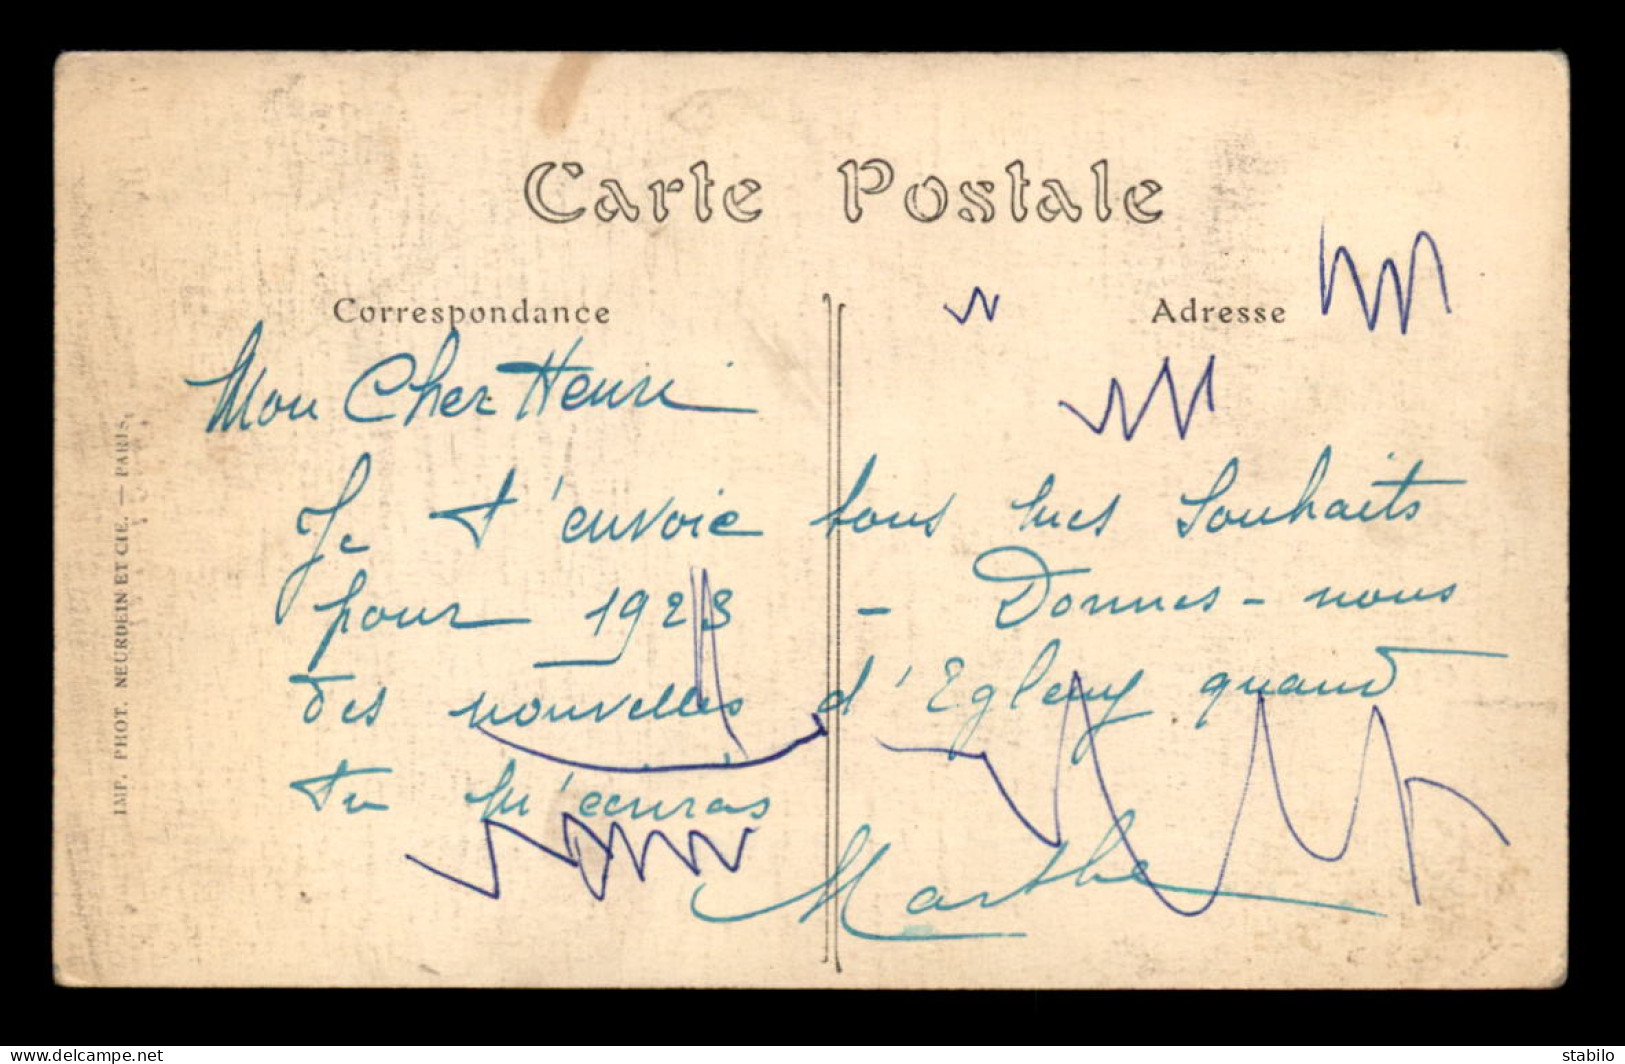 Carte Postale
Correspondance
Adresse
Mon Cher Henri
Je t'envoie tous mes Souhaits
pour 1923 - Donnes-nous
des nouvelles d'Egleny quand
tu m'écriras
Marthe
IMP. PHOT. NEURDEIN ET CIE. — PARIS.
https://www.delcampe.net
stabilo